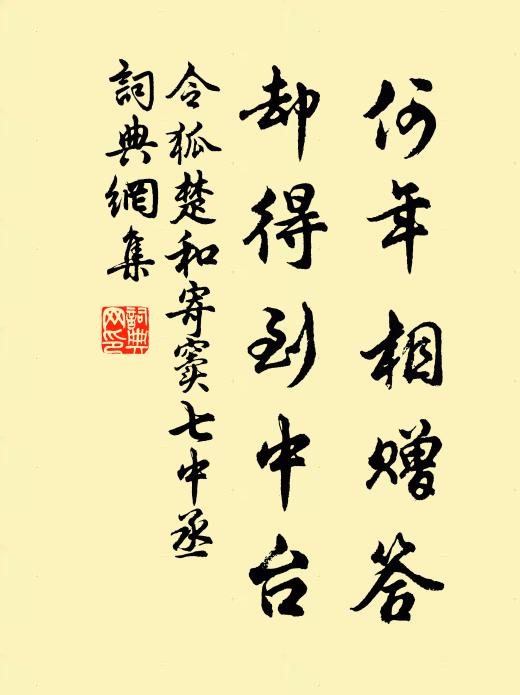 何年相赠答
却得到中台
令狐楚和寄窦七中丞
詞典網集
詞典网印